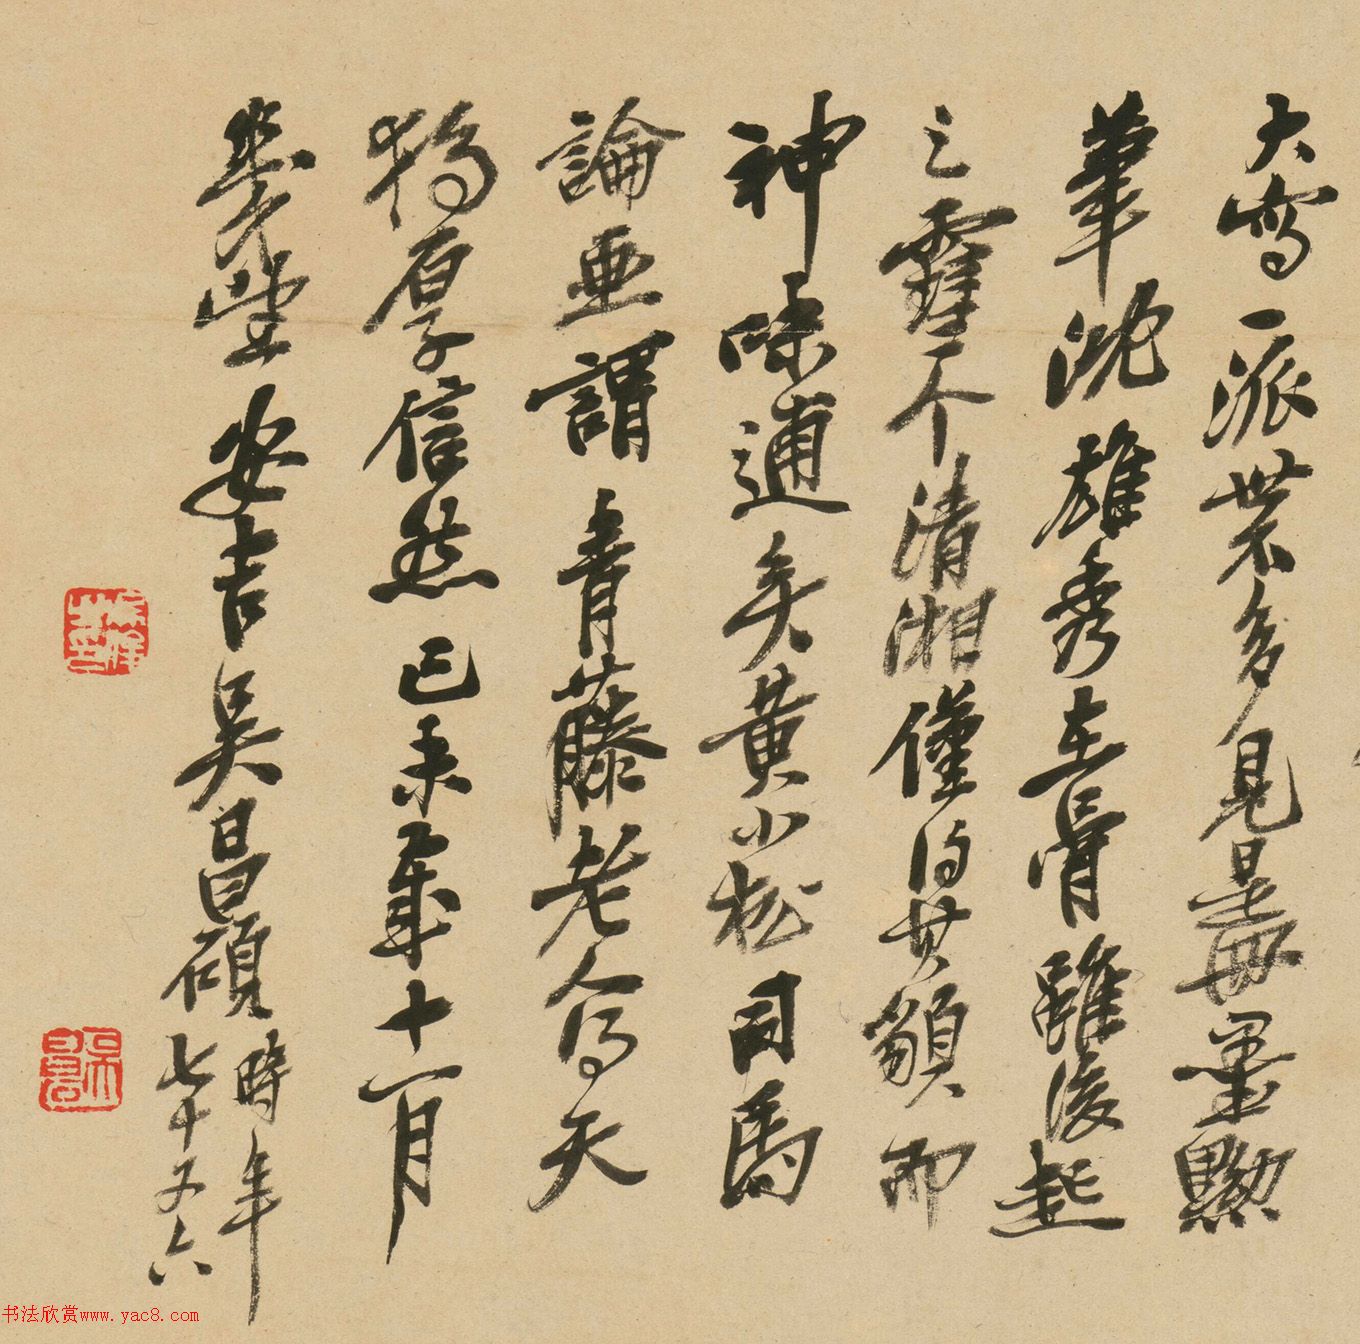 大寫一派世不多見是册墨黝
筆沈雄秀在骨雖後起
之霍个清湘僅得其貌而
神味逋矣黄小松司馬
論畫謂青藤老人得天
獨厚信然己未年十一月
安吉吳昌碩時年
七十又六
书法欣赏www.yac8.com